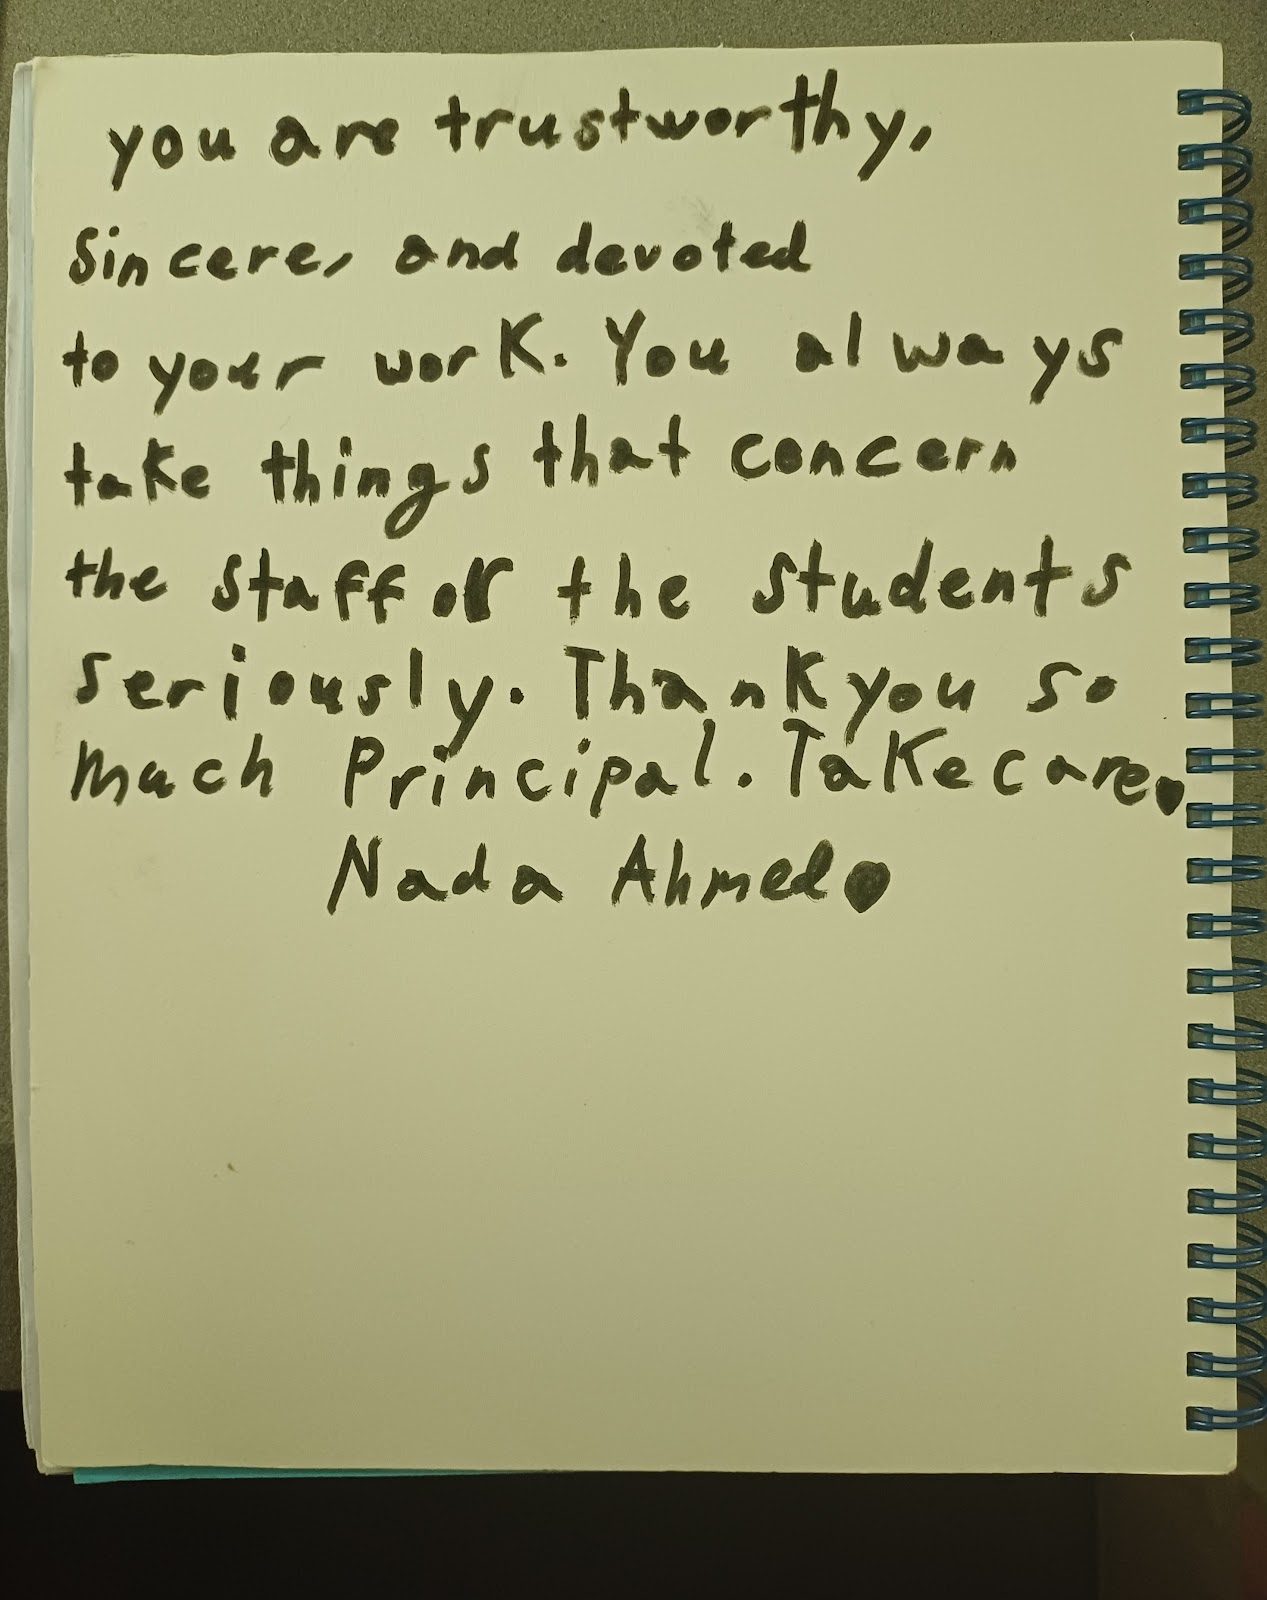 you are trustworthy,
Sincere, and devoted
to your work. You always
take things that concern
the staff or the students
seriously. Thank you so
much Principal. Take care.
Nada Ahmed